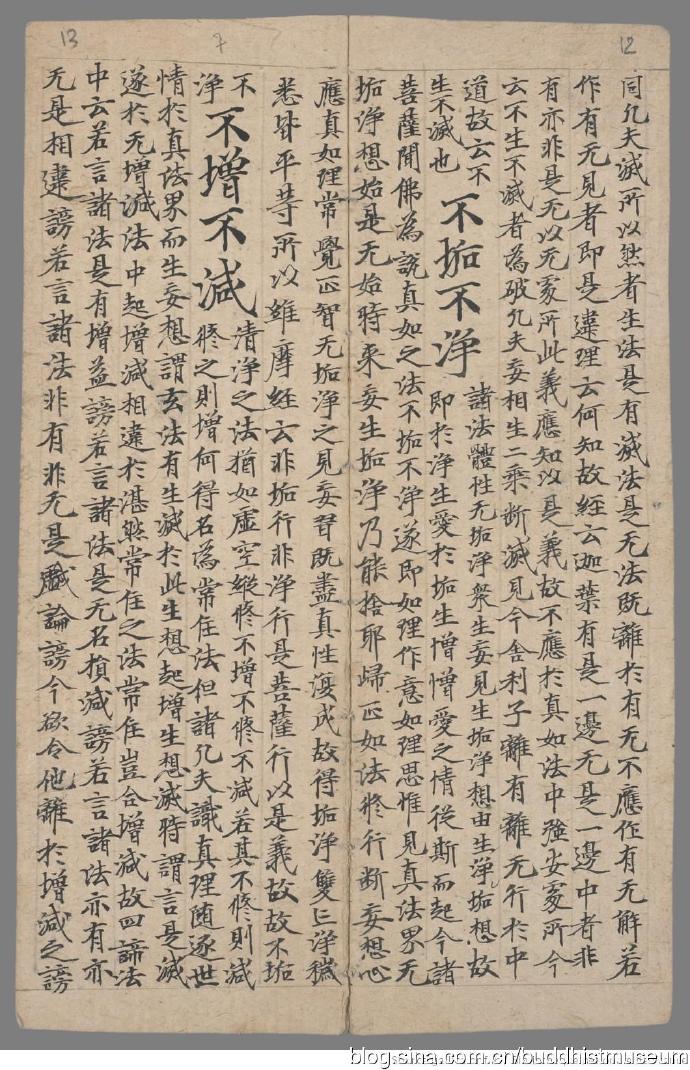 13
7
12
同凡夫滅所以然者生法是有滅法是无法既離於有无不應作有无解若
作有无見者即是違理云何知故経云迦葉有是一邊无是一邊中者非
有亦非是无以无處所此義應知以是義故不應於真如法中強安處所今
云不生不滅者為破凡夫妄相生二乘断滅見今舍利子離有離无行於中
道故云不
生不滅也
不垢不净
諸法體性无垢净衆生妄見生垢净想由生净垢想故
即於净生愛於垢生憎憎愛之情從斯而起今諸
菩薩聞佛為說真如之法不垢不净遂即如理作意如理思惟見真法界无
垢净想始是无始時来妄生垢净乃能捨耶歸正如法修行断妄想心
應真如理常覺正智无垢净之見妄習既盡真性復成故得垢净雙亡净穢
悉皆平等所以維摩経云非垢行非净行是菩薩行以是義故故不垢
不
净
不增不減
清净之法猶如虚空縱修不增不修不減若其不修則減
修之則增何得名為常住法但諸凡夫識真理随逐世
情於真法界而生妄想謂玄法有生滅於此生想起增生想滅時謂言是滅
遂於无增減法中起增減相違於湛然常住之法常住豈合增減故四諦法
中云若言諸法是有增益謗若言諸法是无名損減謗若言諸法亦有亦
无是相違謗若言諸法非有非无是戯論謗今欲令他離於增減之謗
blog.sina.com.cn/buddhistmuseum